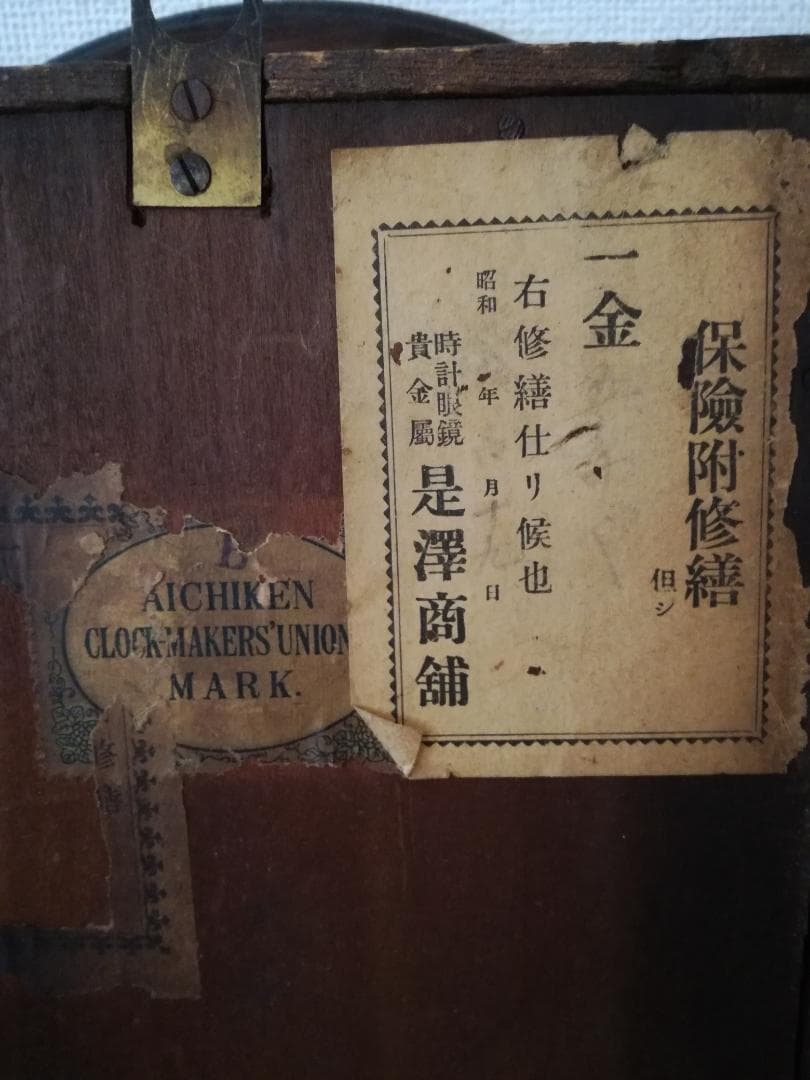 保險附修繕
但シ
一金
右修繕仕リ候也
昭和 年 月 日
時計眼鏡
貴金屬
是澤商舖
B
AICHIKEN
CLOCK-MAKERS' UNION
MARK.
修繕